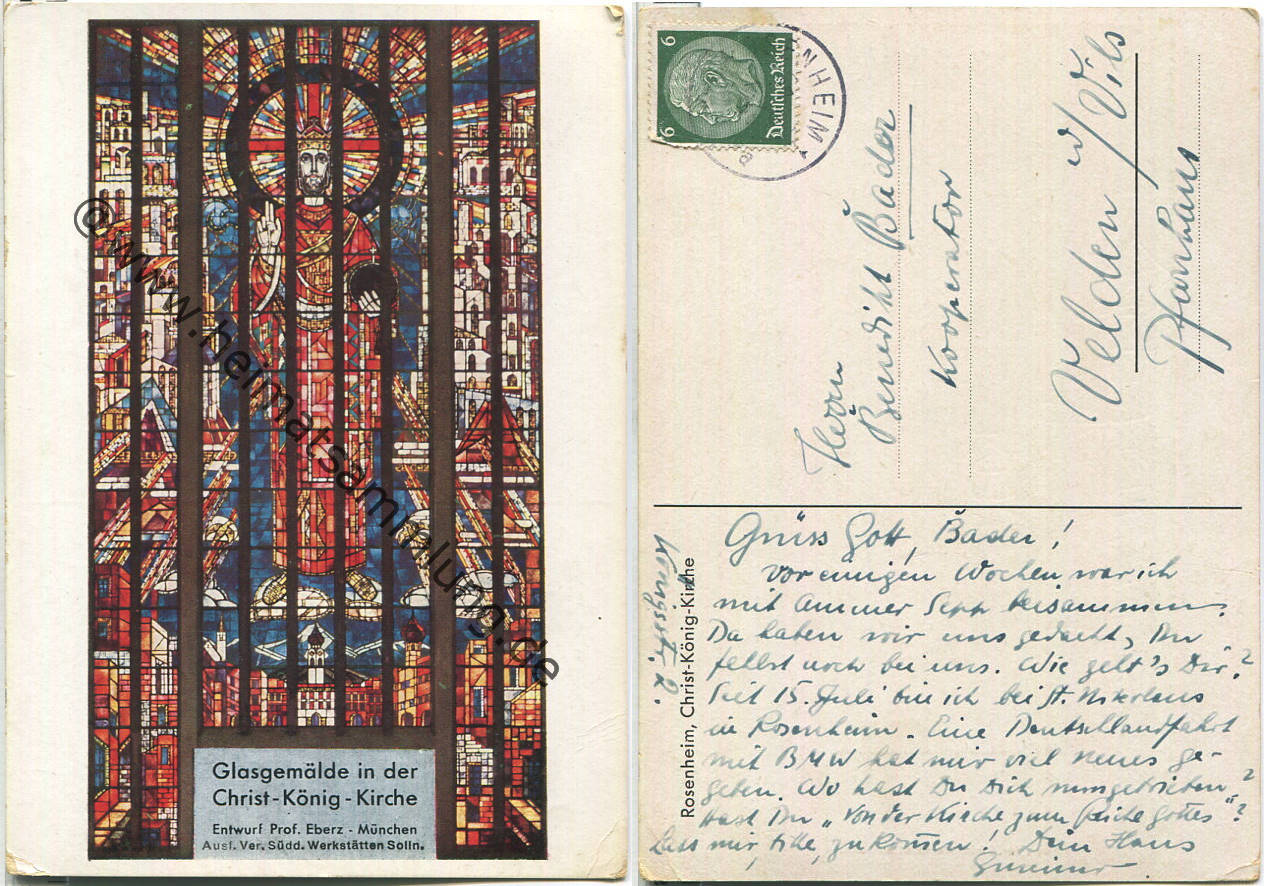 Glasgemälde in der
Christ-König-Kirche
Entwurf Prof. Eberz - München
Ausf. Ver. Südd. Werkstätten Solln.
©www.heimatsammlung.de
6 Deutsches Reich 6
NHEIM 1
a
Herrn
Benedikt Bader
Kooperator
Velden a/Vils
Pfarrhaus
Rosenheim, Christ-König-Kirche
Grüss Gott, Bader!
Vor einigen Wochen war ich
mit Ammer Sepp beisammen.
Da haben wir uns gedacht, Du
fehlst noch bei uns. Wie geht's Dir?
Seit 15. Juli bin ich bei St. Nikolaus
in Rosenheim. Eine Deutschlandfahrt
mit BMW hat mir viel Neues ge-
geben. Wo hast Du Dich rumgetrieben?
Hast Du „Von der Kirche zum Reiche Gottes"?
Lass mir, bitte, zukommen! Dein Hans
Königstr. 2.